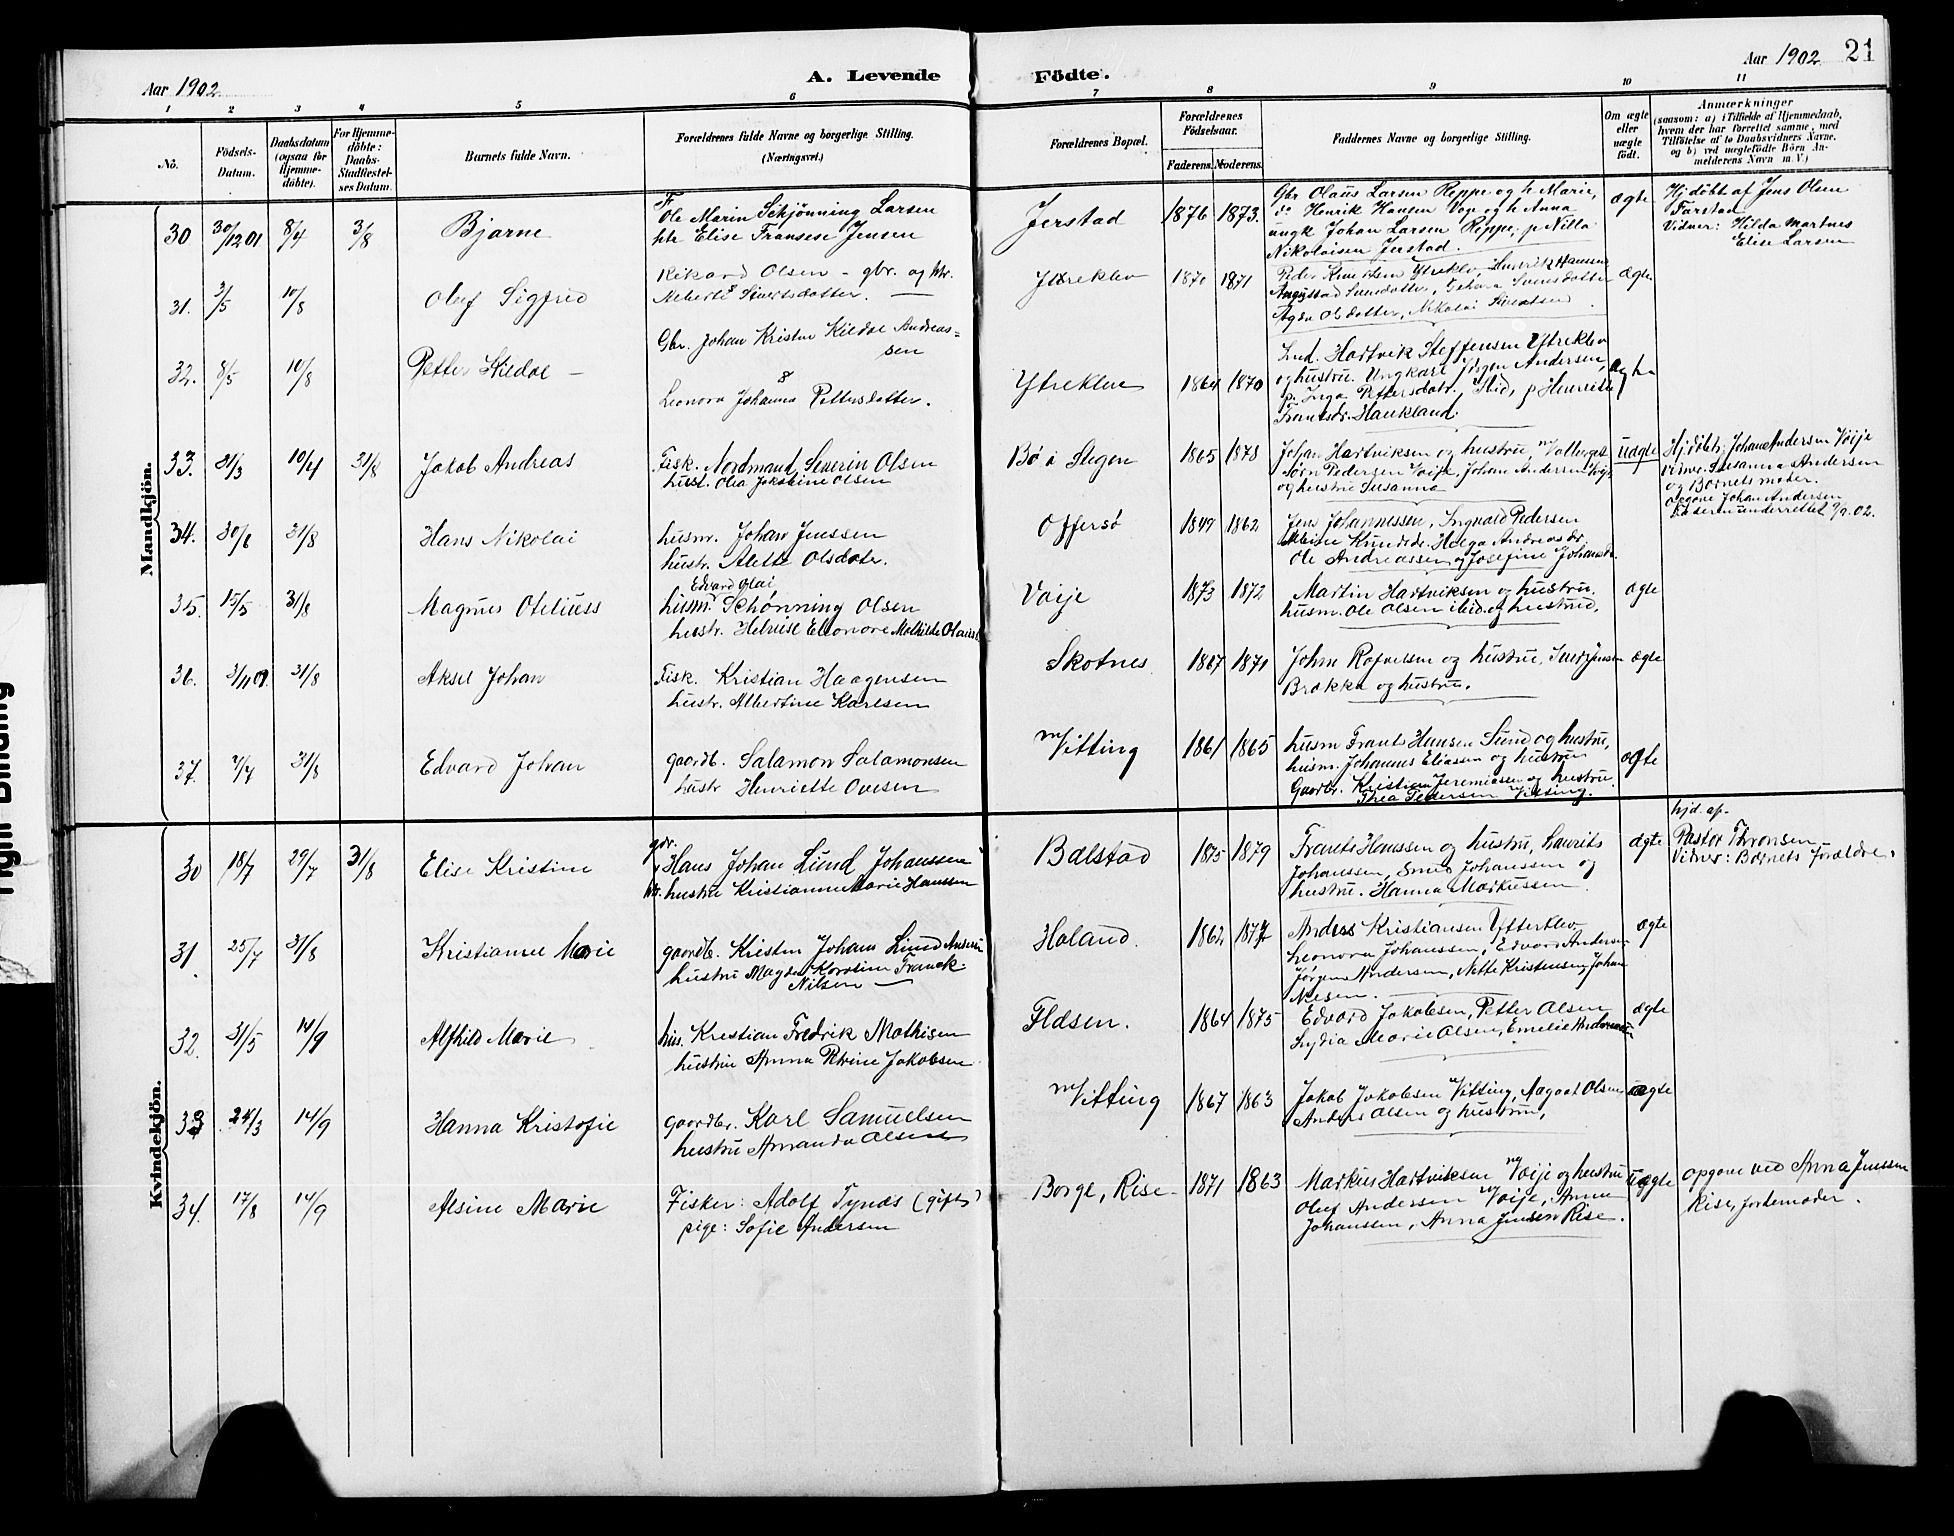 Aar 1902.
A. Levende
Födte.
Aar 1902
21
1 2 3 4 5 6 7 8 9 10 11
No.
Födsels-
Datum.
Daabsdatum
(ogsaa for
Hjemme-
döbte).
For Hjemme-
döbte:
Daabs-
Stadfæstel-
ses Datum.
Barnets fulde Navn.
Forældrenes fulde Navne og borgerlige Stilling.
(Næringsvei.)
Forældrenes Bopæl.
Forældrenes
Födselsaar.
Faderens.
Moderens.
Faddernes Navne og borgerlige Stilling.
Om ægte
eller
uægte
födt.
Anmærkninger
(saasom: a) i Tilfælde af Hjemmedaab,
hvem der har forrettet samme, med
Tilföielse af to Daabsvidners Navne,
og b) ved uægtefödte Börn An-
melderens Navn m. V.)
Mandkjön.
30 30/12 01 8/4 3/8 Bjarne
F
Ole Marin Schjønning Larsen
htr Elise Fransese Jensen
Jerstad 1876 1873.
Gbr Olaus Larsen Reppe og h Marie,
do Henrik Hansen Vog og h Anna
ungk Johan Larsen Reppe, p Nilla
Nikolaisen Jerstad.
ægte
Hj døbt af Jens Olsen
Farstad
Vidner: Hilda Martnes
Elise Larsen
31. 3/5 10/8 Oluf Sigfred
Rikard Olsen - gbr. og htr.
Sivertsdatter.
Ytreklev 1870 1871
Peder Knudsen Ytreklev, Henrik Hansen
Olsdatter, Nikolai
ægte
32. 8/5 10/8 Petter Kildal
Gbr. Johan Kristian Kildal Andreas=
sen
8
Leonora Johanna Pettersdatter.
Ytreklev 1864 1870
Ind. Hartvik Steffensen Ytreklev
og hustru. Ungkarl Jørgen Andersen,
p. Inga Pettersdatr. Ibid, p Henrikke
Frantsdr. Haukland.
ægte
33. 31/3 10/4 31/8 Jakob Andreas
Fisk. Nordmand Severin Olsen
hust. Olea Jakobine Olsen
Bø i Stegen 1865 1878
Johan Hartviksen og hustru,
Søren Pedersen Voije, Johan Andersen Voije
og hustru Susanna
uægte
Hj.døbt: Johan Andersen Voije
vidner. Susanna Andersen
og Barnets moder.
Opgave Johan Andersen
underrettet 9/9.02.
34. 30/6 31/8 Hans Nikolai
husm. Johan Jenssen
hustr. Alette Olsdatr.
Offersø 1849 1862
Jens Johannessen, Ingvald Pedersen
Knudsdr. Helga Andreasdr.
Ole Andreassen og Josefine Johansdr.
35. 15/5 31/8 Magnus Oteliuss
Edvard Olai
husm. Schønning Olsen
hustr. Helvise Elleonore Mathilde Olausd.
Voije 1873 1872
Martin Hartviksen og hustru.
husm. Ole Olsen ibid. og hustrue,
ægte
36. 3/11 01. 31/8 Aksel Johan
Fisk. Kristian Haagensen
hustr. Albertine Karlsen
Skotnes 1867 1871
Johan Rafaelsen og hustru,
Brakka og hustru.
ægte
37. 7/4 31/8 Edvard Johan
gaardb. Salamon Salamonsen
hustr Henriette Ovesen
Vitting 1861 1865
husm Frants Hansen Sund og hustru,
husm. Johannes Eliasen og hustru
Gaardbr. Kristian Jeremiassen og hustru
Thea Pedersen Vitting.
ægte
Kvindekjön.
30 18/7 29/7 31/8 Elise Kristine
gbr.
Hans Johan Lund Johanssen
htr. hustru Kristianne Marie Hanssen
Balstad 1875 1879
Frants Hanssen og hustru, Laurits
Johanssen, Smed Johanssen og
hustru. Hanna Markussen.
ægte
hjd. af
Pastor Thronsen
Vidner: Barnets Forældre.
31. 25/7 31/8 Kristianne Marie
gaardb. Kristen Johan Lund Andersen
hustru Magda Karoline Franck.
Nilsen
Haland. 1862 1877
Anders Kristiansen Ytterklev,
Leonora Johanssen, Edvard Andersen
Jørgen Andersen, Nette Kristensen, Johan
Nilsen.
ægte
32. 31/5 14/9 Alfhild Marie
hus. Krestian Fredrik Mathisen
hustru Anna Petrine Jakobsen
Flæsen. 1864 1875
Edvard Jakobsen, Petter Olsen
Lydia Marie Olsen, Emelie Andersen
ægte
33 24/3 14/9 Hanna Kristofie
gaardbr. Karl Samuelsen
hustru Amanda Olsen
Vitting 1867 1863
Jakob Jakobsen Vitting, Aagaat Olsen
Anders Olsen og hustru,
ægte
34. 17/8 14/9 Alsine Marie
Fisker: Adolf Tynæs (gift)
pige: Sofie Andersen
Borge, Rise 1871 1863
Markus Hartviksen Voije og hustru
Oluf Andersen Voije, Anna
Johanssen, Anna Jensen Rise.
uægte
Opgave ved Anna Jenssen
Rise, Jordemoder.